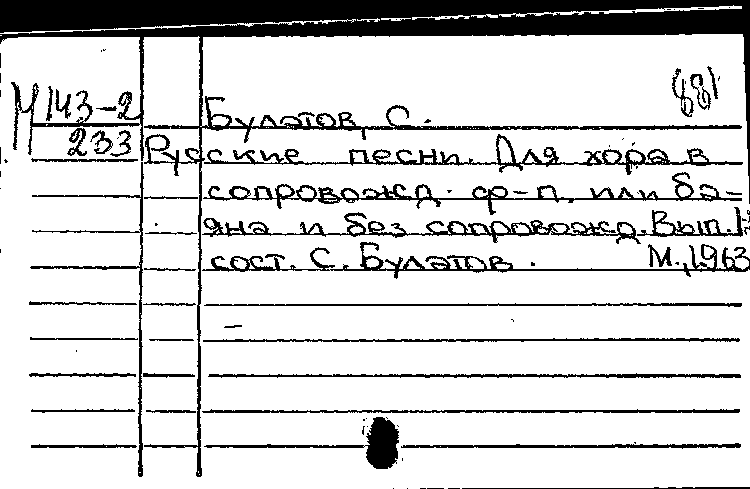 М143-2
233
881
Булатов, С.
Русские песни. Для хора в
сопровожд. ф-п. или ба-
яна и без сопровожд. Вып. 1.
сост. С. Булатов. М., 1963